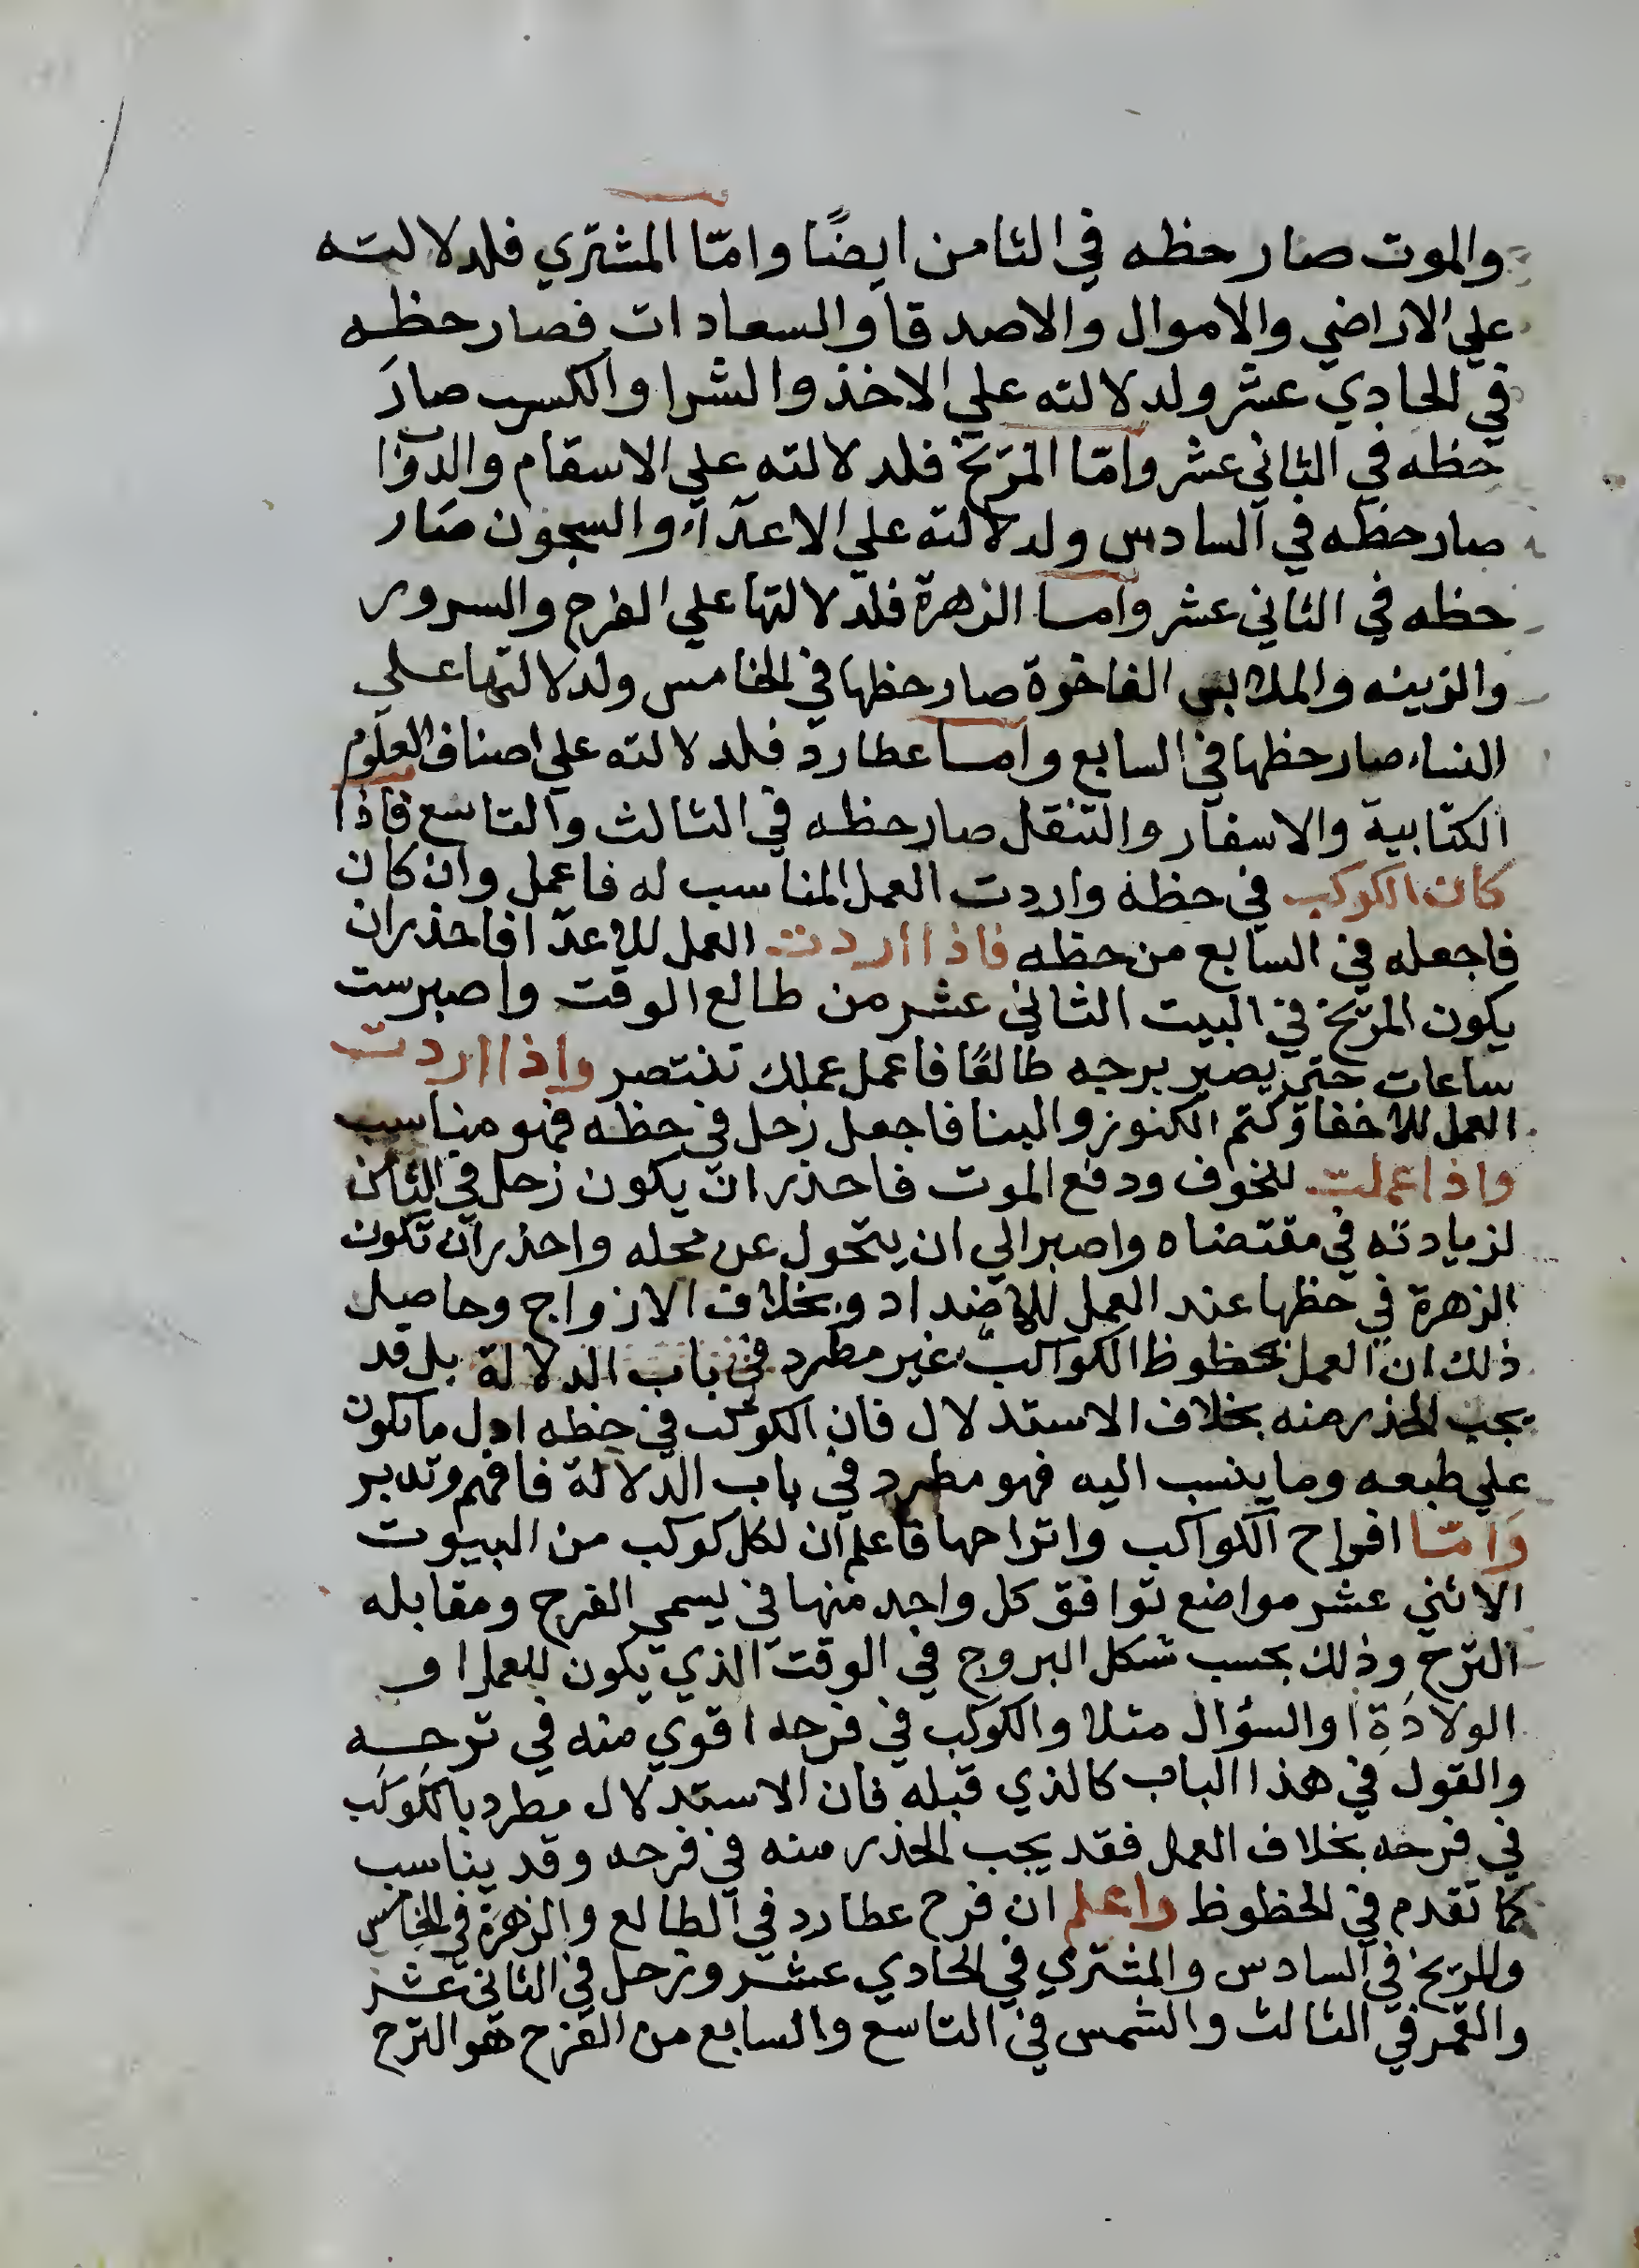 والموت صار حظه في الثامن ايضًا وامّا المشتري فلدلالته
علي الاراضي والاموال والاصدقا والسعادات فصار حظه
في الحادي عشر ولدلالته علي الاخذ والشرا والكسب صارَ
حظه في الثاني عشر وامّا المرّيخ فلدلالته علي الاسقام والدوا
صار حظه في السادس ولدلالته علي الاعدآء والسجون صار
حظه في الثاني عشر واما الزهرة فلدلالتها علي الفرح والسرور
والزينه والملابس الفاخرة صار حظها في الخامس ولدلالتها علي
النساء صار حظها في السابع واما عطارد فلدلالته علي اصناف العلوم
الكتابية والاسفار والتنقل صار حظه في الثالث والتاسع فاذا
كان الكوكب في حظه واردت العمل المناسب له فاعمل وان كان
فاجعله في السابع من حظه فاذا اردت العمل للاعدّا فاحذر ان
يكون المرّيخ في البيت الثاني عشر من طالع الوقت واصبر ست
ساعات حتي يصير برجه طالعًا فاعمل عملك تنتصر واذا اردت
العمل للاخفا وكتم الكنوز والبنا فاجعل زحل في حظه فهو مناسب
واذا عملت للخوف ودفع الموت فاحذر ان يكون زحل في الثامن
لزيادته في مقتضاه واصبر الي ان يتحول عن محله واحذر ان تكون
الزهرة في حظها عند العمل للاضداد وبخلاف الازواج وحاصل
ذلك ان العمل بحظوظ الكواكب غير مطرد في باب الدلالة بل قد
يجب الحذر منه بخلاف الاستدلال فان الكوكب في حظه ادل ما يكون
علي طبعه وما ينسب اليه فهو مطرد في باب الدلالة فافهم وتدبر
وَامّا افراح الكواكب واتراحها فاعلم ان لكل كوكب من البيوت
الاثني عشر مواضع توافق كل واحد منها في يسمي الفرح ومقابله
الترح وذلك بحسب شكل البروج في الوقت الذي يكون للعمل او
الولادَةِ او السؤال مثلا والكوكب في فرحه اقوي منه في ترحِه
والقول في هذا الباب كالذي قبله فان الاستدلال مطرد بالكوكب
في فرحه بخلاف العمل فقد يجب الحذر منه في فرحه وقد يناسب
كما تقدم في الحظوظ واعلم ان فرح عطارد في الطالع والزهرة في الخامس
والمرّيخ في السادس والمشتري في الحادي عشر وزحل في الثاني عشر
والقمر في الثالث والشمس في التاسع والسابع من الفرح هو الترح